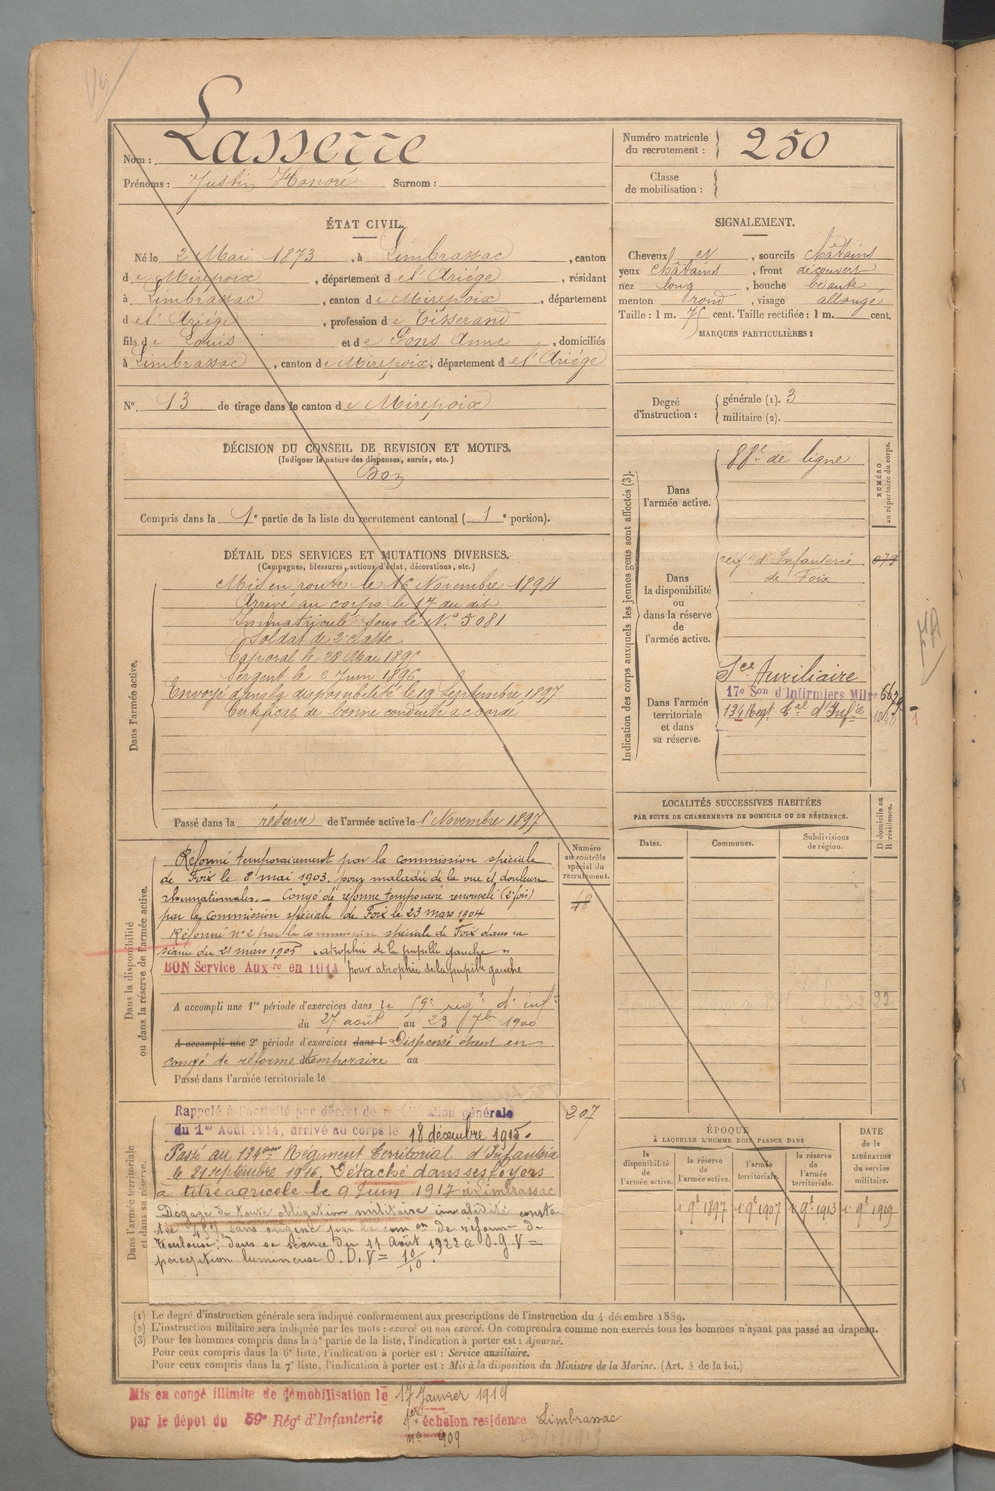 Nom : Lasserre
Prénoms : Justin Honoré Surnom :
Numéro matricule du recrutement : 250
Classe de mobilisation :
ÉTAT CIVIL.
Né le 2 Mai 1873, à Limbrassac, canton
de Mirepoix, département de l'Ariége, résidant
à Limbrassac, canton de Mirepoix, département
de l'Ariége, profession de Tisserand
fils de Louis et de Pons Anne, domiciliés
à Limbrassac, canton de Mirepoix, département de l'Ariége
N° 13 de tirage dans le canton de Mirepoix
SIGNALEMENT.
Cheveux et, sourcils châtains
yeux châtains, front découvert
nez long, bouche béante
menton rond, visage allongé
Taille : 1 m. 75 cent. Taille rectifiée : 1 m. cent.
MARQUES PARTICULIÈRES :
Degré d'instruction : générale (1). 3
militaire (2).
DÉCISION DU CONSEIL DE REVISION ET MOTIFS.
(Indiquer la nature des dispenses, sursis, etc.)
Bon
Compris dans la 1e partie de la liste du recrutement cantonal (1e portion).
DÉTAIL DES SERVICES ET MUTATIONS DIVERSES.
(Campagnes, blessures, actions d'éclat, décorations, etc.)
Dans l'armée active.
Mis en route le 16 Novembre 1894
Arrivé au corps le 17 du dit
Immatriculé sous le N° 5081
Soldat de 2e classe
Caporal le 28 Mai 189
Sergent le Juin 1896
Envoyé dans la disponibilité le 19 Septembre 1897
Certificat de bonne conduite accordé
Passé dans la réserve de l'armée active le 1r Novembre 1897
Indication des corps auxquels les jeunes gens sont affectés (3).
NUMÉRO au répertoire du corps.
Dans l'armée active.
88e de ligne
Dans la disponibilité ou dans la réserve de l'armée active.
regt d'Infanterie
de Foix
079
Dans l'armée territoriale et dans sa réserve.
Sce Auxiliaire
17e Son d'Infirmiers Milres
134 Regt Tal d'Infie
LOCALITÉS SUCCESSIVES HABITÉES
PAR SUITE DE CHANGEMENTS DE DOMICILE OU DE RÉSIDENCE.
Dates. Communes. Subdivisions de région. D domicile ou R résidence.
Dans la disponibilité ou dans la réserve de l'armée active.
Numéro au contrôle spécial du recrutement.
48
Réformé temporairement par la commission spéciale
de Foix le 8 mai 1903, pour maladie de la vue et douleurs
rhumatismales. — Congé de réforme temporaire renouvelé (2e fois)
par la Commission spéciale de Foix le 23 mars 1904
Réformé n° 2 par la commission spéciale de Foix dans sa
séance du 21 mars 1905 "atrophie de la pupille gauche"
BON Service Auxre en 1914 pour atrophie de la pupille gauche
A accompli une 1re période d'exercices dans le 59e regt d'inft
du 27 août au 23 7bre 1900
A accompli une 2e période d'exercices dans l Dispensé étant en
congé de réforme temporaire au
Passé dans l'armée territoriale le
Dans l'armée territoriale et dans sa réserve.
207
Rappelé à l'activité par décret de mobilisation générale
du 1er Août 1914, arrivé au corps le 18 décembre 1915.
Passé au 134ème Régiment Territorial d'Infanterie
le 21 septembre 1916. Détaché dans ses foyers
à titre agricole le 9 Juin 1917 à Limbrassac
Dégagé de toute obligation militaire invalidité consta
tée sans origine par la comon de réforme de
Toulouse, dans sa séance du 11 Août 1922 O.G V =
perception lumineuse O.D. V = 10/10.
ÉPOQUE
À LAQUELLE L'HOMME DOIT PASSER DANS
la disponibilité de l'armée active. la réserve de l'armée active. l'armée territoriale. la réserve de l'armée territoriale.
DATE de la LIBÉRATION du service militaire.
1 9e 1897 1 9e 1907 1 9e 1913 1 9e 1919
(1) Le degré d'instruction générale sera indiqué conformément aux prescriptions de l'instruction du 4 décembre 1889.
(2) L'instruction militaire sera indiquée par les mots : exercé ou non exercé. On comprendra comme non exercés tous les hommes n'ayant pas passé au drapeau.
(3) Pour les hommes compris dans la 5e partie de la liste, l'indication à porter est : Ajourné.
Pour ceux compris dans la 6e liste, l'indication à porter est : Service auxiliaire.
Pour ceux compris dans la 7e liste, l'indication à porter est : Mis à la disposition du Ministre de la Marine. (Art. 4 de la loi.)
Mis en congé illimité de démobilisation le 17 Janvier 1919
par le dépôt du 59e Régt d'Infanterie 1er échelon residence Limbrassac
n° 909